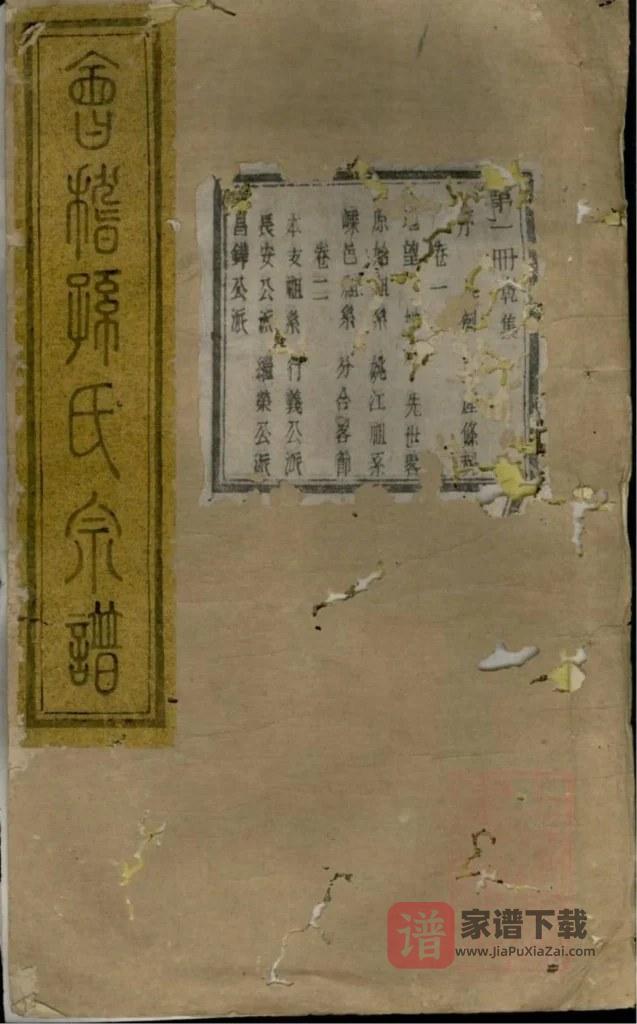 會稽孫氏宗譜
第一冊 集
序 條
卷一
望 先世畧
原始祖系 姚江祖系
嵊邑祖系 分合畧節
卷二
本支祖系 行義公派
長安公派 繼榮公派
昌鏵公派
谱 家谱下载
www.JiaPuXiaZai.com